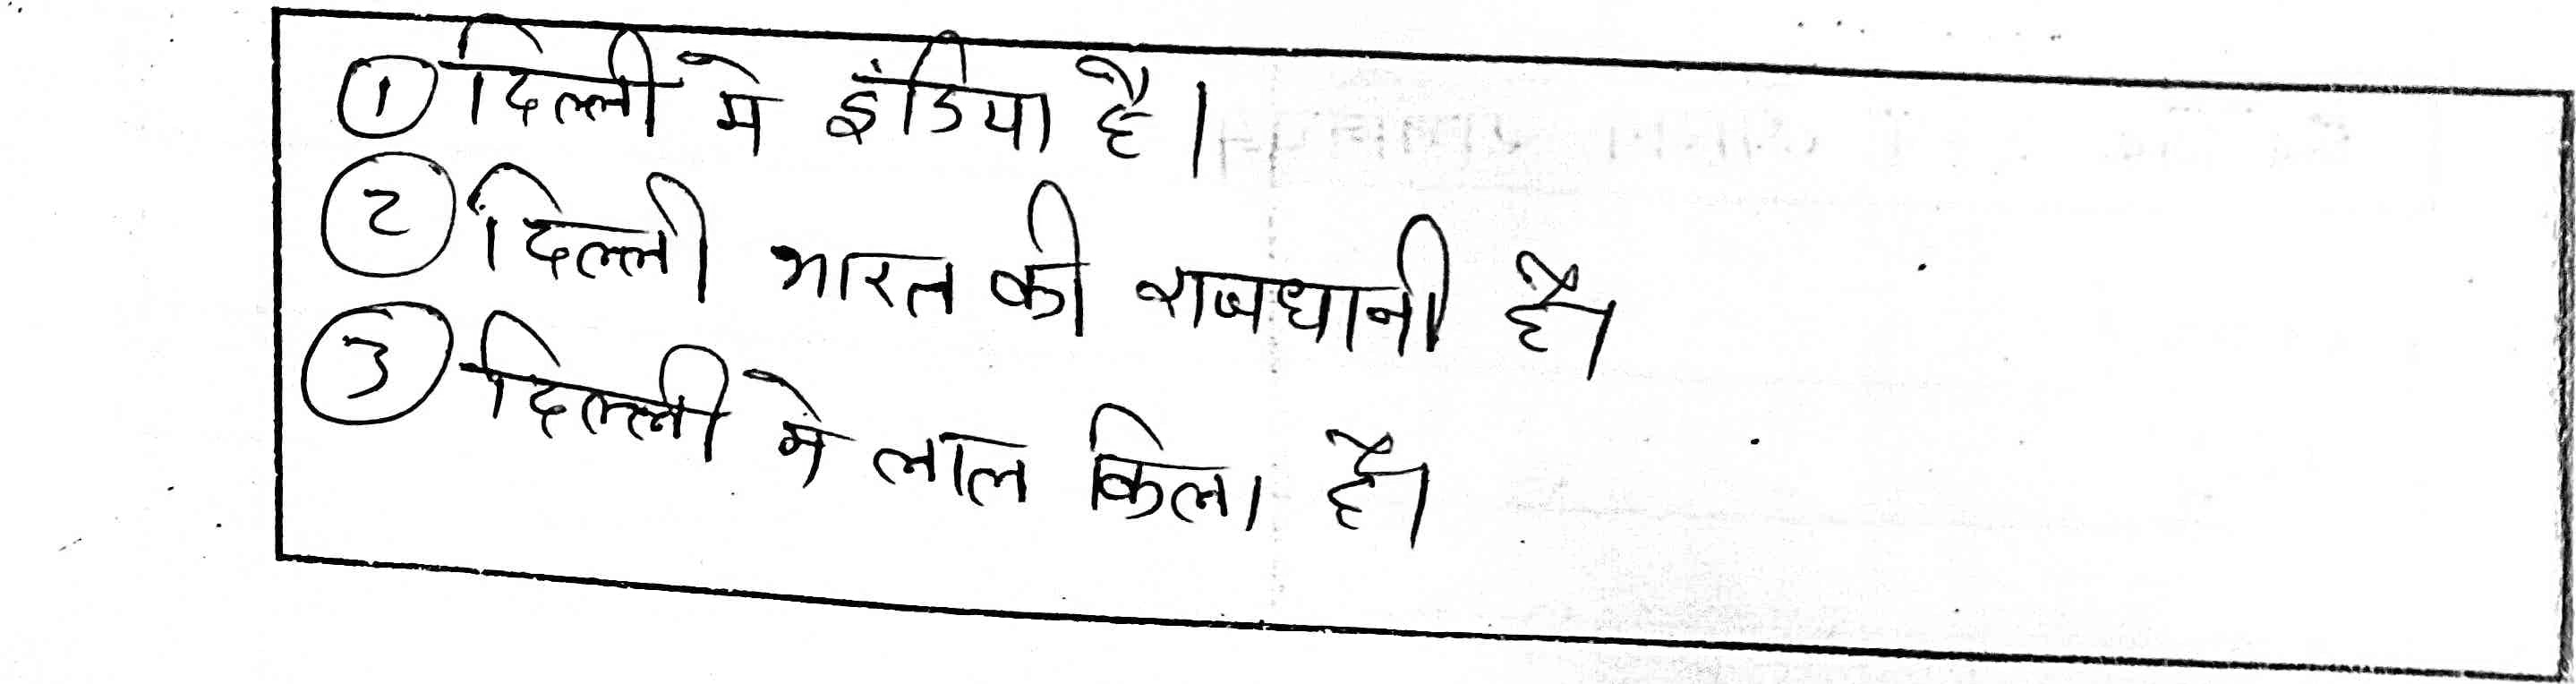 ① दिल्ली मे इंडिया है।
② दिल्ली भारत की राजधानी है।
③ दिल्ली मे लाल किला है।